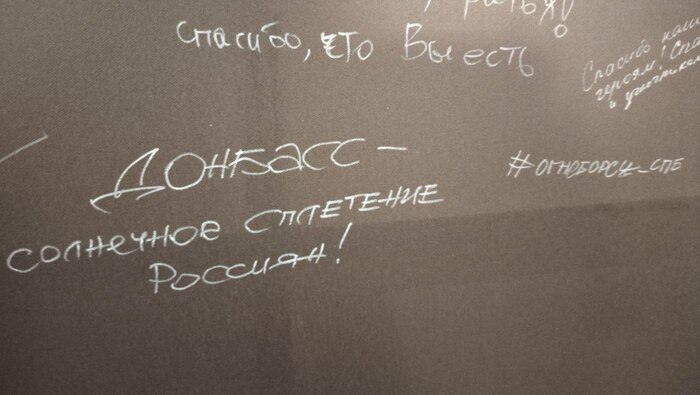 Спасибо, что Вы есть
Спасибо
героям! Спа
и участника
ДОНБАСС –
СОЛНЕЧНОЕ СПЛЕТЕНИЕ
РОССИЯН!
#ОГНЕБОРЦЫ_СПБ